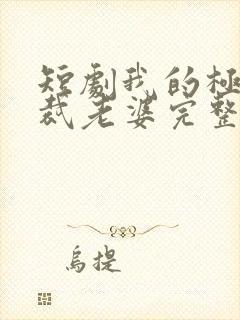 短劇我的極
裁老婆完整
烏提